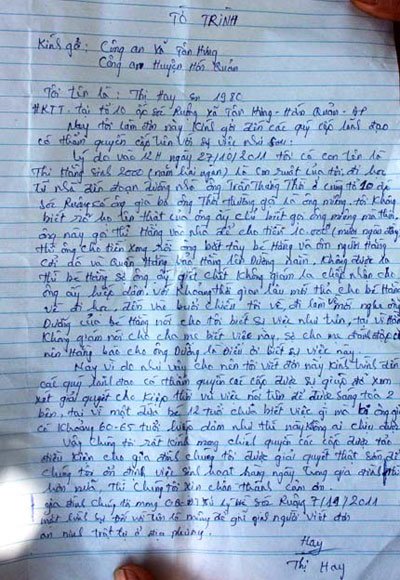 TỜ TRÌNH
Kính gởi: Công an Xã Tân Hưng
Công an Huyện Hớn Quản
Tôi tên là: Thị Hay sn 1980
HKTT: tại tổ 10 ấp Sóc Ruộng xã Tân Hưng - Hớn Quản - BP
Nay tôi làm đơn này Kính gởi đến các quý cấp lãnh đạo
có thẩm quyền cấp trên với sự việc như sau:
Lý do vào 12H ngày 27/10/2011 tôi có con tên là
Thị Hằng sinh 2000 (năm hai ngàn) là con ruột của tôi: đi học
từ nhà đến đoạn đường nhà ông Trần Thắng Thố ở cùng tổ 10 ấp
Sóc Ruộng có ông già bố ông Thố thường gọi là ông miếng, tôi không
biết rõ họ tên thật của ông ấy chỉ biết gọi ông miếng mà thôi,
ông này gọi Thị Hằng vào nhà để cho tiền 10.000 (mười ngàn đồng)
thì ông cho tiền xong rồi ông bắt tay bé Hằng và ôm người Hằng
Cởi đồ và Quần Hằng Hằng lên Dường nằm. Không được la
thì bé Hằng sợ ông ấy giết chết không giám la chấp nhận cho
ông ấy hiếp dâm. Khoảng thời gian lâu mới thả cho bé Hằng
về đi học, đến vào buổi chiều tôi về đi làm mới nghe ông
Dưỡng của bé Hằng nói cho tôi biết sự việc như trên, tại vì Hằng
Không giám nói cho cha mẹ biết việc này, sợ cha mẹ đánh đập
nên Hằng báo cho ông Dưỡng là điều ở biết sự việc này.
Nay vì do như vậy cho nên tôi viết đơn này Kính trình đến
các quý lãnh đạo có thẩm quyền các cấp được sự giúp đỡ xem
xét giải quyết cho kịp thời vụ việc nói trên để được sáng tỏ 2
bên, tại vì một đứa bé 12 tuổi chưa biết việc gì mà bị ông già
có khoảng 60-65 tuổi hiếp dâm như thế này ai chịu được.
Vậy chúng tôi rất kính mong chính quyền các cấp được tạo
điều kiện cho gia đình chúng tôi được giải quyết thật sớm để
chúng tôi ổn định việc sinh hoạt hàng ngày trong gia đình
hơn nữa, thì chúng tôi xin chân thành cảm ơn.
gia đình chúng tôi mong Sóc Ruộng 7/11/2011
người viết đơn
an ninh trật tự ở địa phương.
Hay
Thị Hay